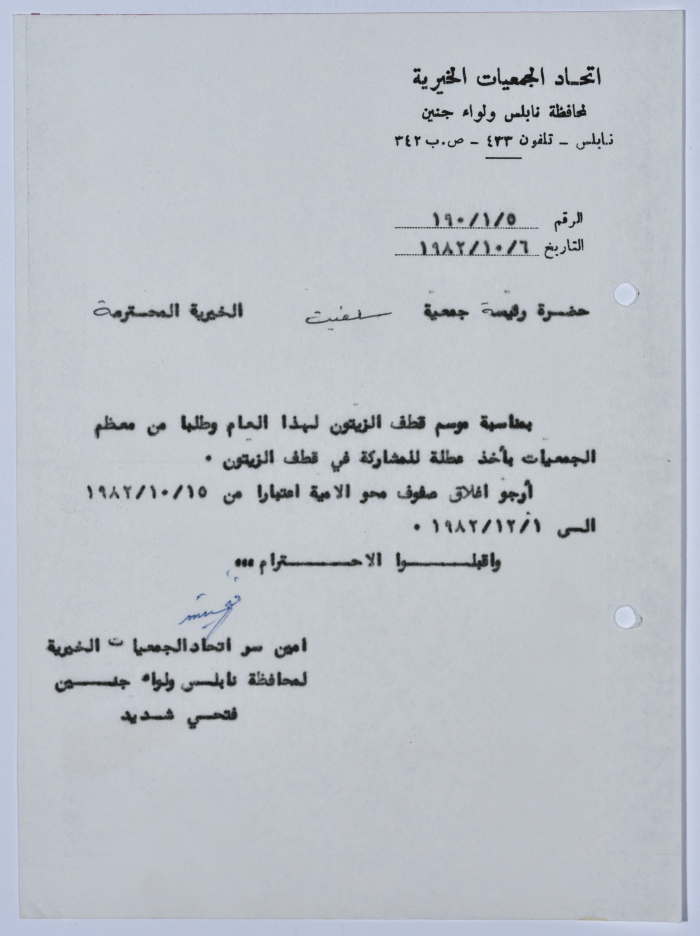 اتحاد الجمعيات الخيرية
لمحافظة نابلس ولواء جنين
نابلس - تلفون ٤٣٣ - ص.ب ٣٤٢
الرقم ١٩٠/١/٥
التاريخ ١٩٨٢/١٠/٦
حضرة رئيسة جمعية سلفيت الخيرية المحترمة
بمناسبة موسم قطف الزيتون لهذا العام وطلبا من معظم
الجمعيات بأخذ عطلة للمشاركة في قطف الزيتون .
أرجو اغلاق صفوف محو الامية اعتبارا من ١٩٨٢/١٠/١٥
الى ١٩٨٢/١٢/١ .
واقبلوا الاحترام ...
امين سر اتحاد الجمعيات الخيرية
لمحافظة نابلس ولواء جنين
فتحي شديد